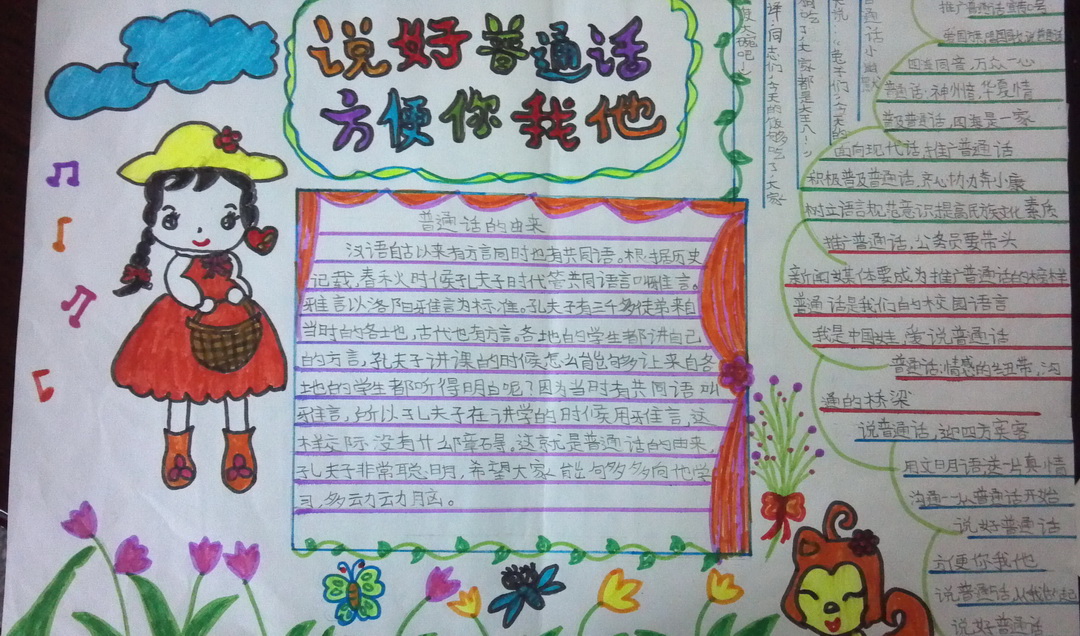 说好普通话
方便你我他
普通话的由来
汉语自古以来有方言同时也有共同语。根据历史
记载,春秋时候孔夫子时代管共同语言叫雅言。
雅言以洛阳雅言为标准。孔夫子有三千多徒弟来自
当时的各地,古代也有方言。各地的学生都讲自己
的方言,孔夫子讲课的时候怎么能够让来自各
地的学生都听得明白呢?因为当时有共同语叫
雅言,所以孔夫子在讲学的时候用雅言,这
样交际没有什么障碍。这就是普通话的由来,
孔夫子非常聪明,希望大家能够多多向他学
习,多动动脑。
普通话小幽默
四海同音,万众一心
普通话·神州音,华夏情
普及普通话,四海是一家
面向现代话,推广普通话
积极普及普通话,齐心协力奔小康
树立语言规范意识,提高民族文化素质
推广普通话,公务员要带头
新闻媒体要成为推广普通话的榜样
普通话是我们的校园语言
我是中国娃,爱说普通话
普通话:情感的纽带,沟
通的桥梁
说普通话,迎四方宾客
用文明语,送一片真情
沟通--从普通话开始
说好普通话
方便你我他
说普通话,从我做起
说好普通话